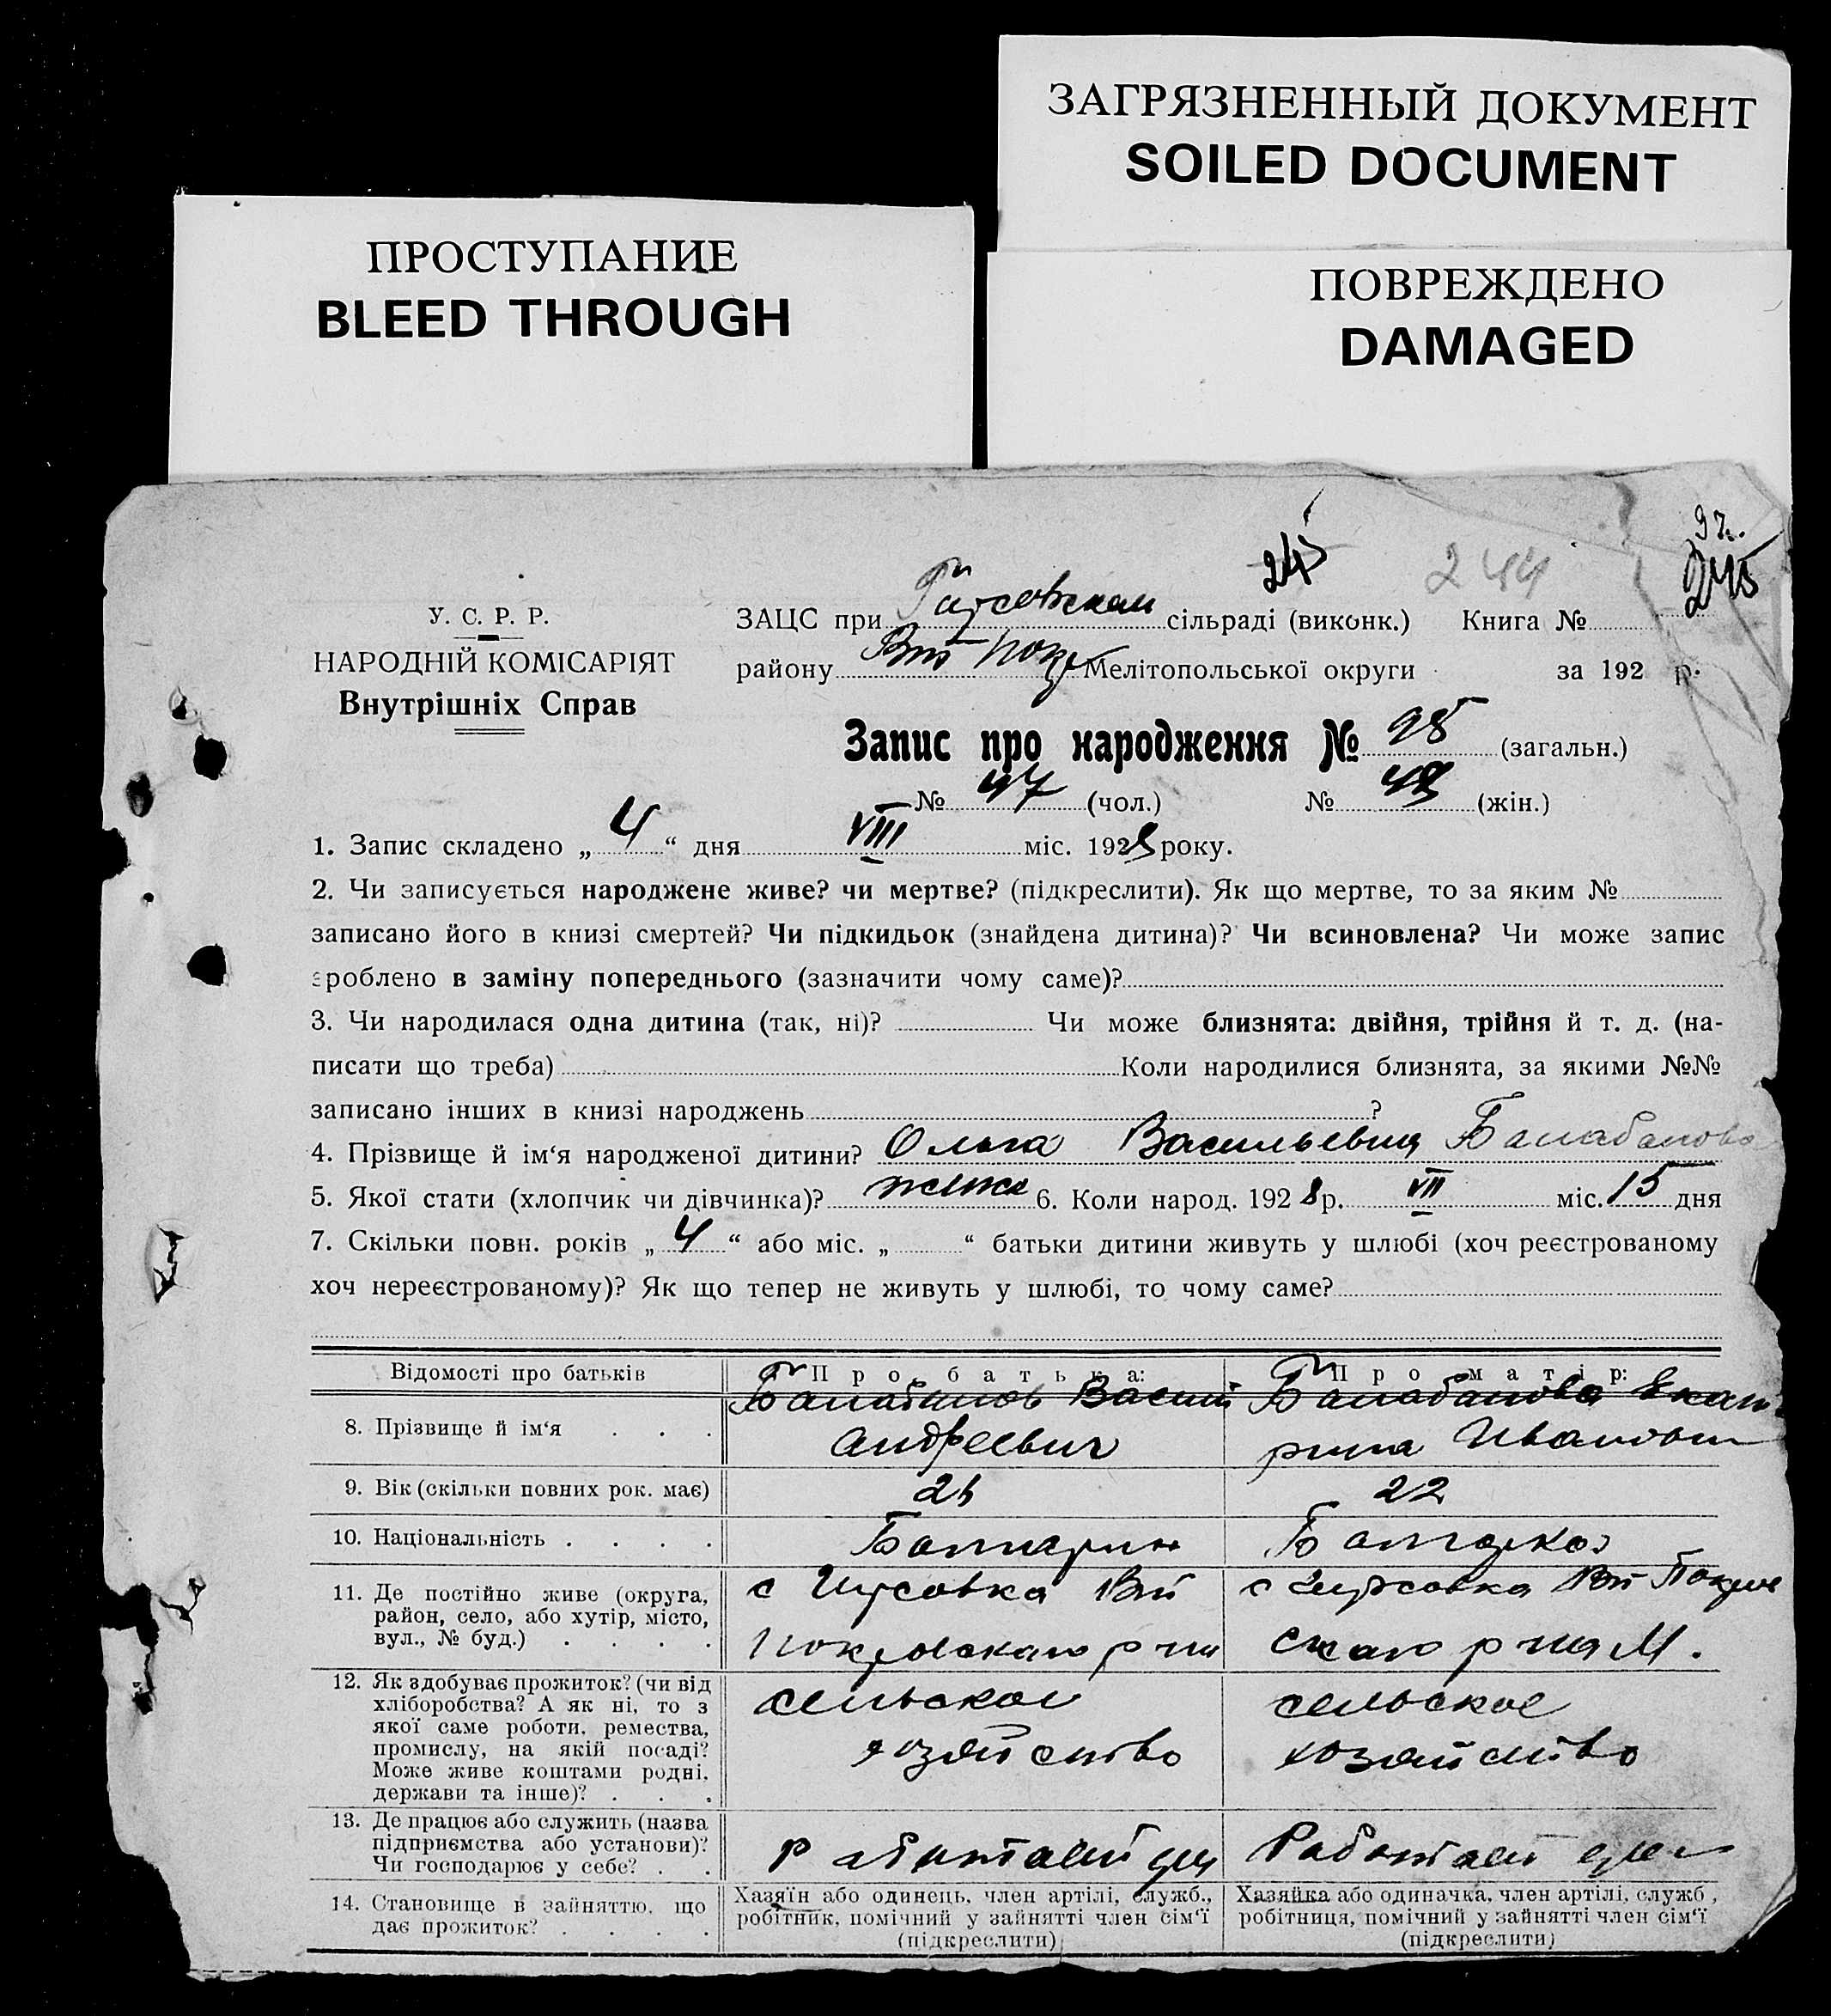 ЗАГРЯЗНЕННЫЙ ДОКУМЕНТ
SOILED DOCUMENT
ПРОСТУПАНИЕ
BLEED THROUGH
ПОВРЕЖДЕНО
DAMAGED
245 244 245
У. С. Р. Р.
НАРОДНІЙ КОМІСАРІЯТ
Внутрішніх Справ
ЗАЦС при сільраді (виконк.) Книга №
району Мелітопольської округи за 192 р.
Запис про народження № 95 (загальн.)
№ 47 (чол.) № 48 (жін.)
1. Запис складено „ 4 “ дня VIII міс. 1928 року.
2. Чи записується народжене живе? чи мертве? (підкреслити). Як що мертве, то за яким №
записано його в книзі смертей? Чи підкидьок (знайдена дитина)? Чи всиновлена? Чи може запис
зроблено в заміну попереднього (зазначити чому саме)?
3. Чи народилася одна дитина (так, ні)? Чи може близнята: двійня, трійня й т. д. (на-
писати що треба) Коли народилися близнята, за якими №№
записано інших в книзі народжень ?
4. Прізвище й ім‘я народженої дитини? Ольга Васильевна Балабанова
5. Якої стати (хлопчик чи дівчинка)? 6. Коли народ. 1928 р. VII міс. 15 дня
7. Скільки повн. років „ 4 “ або міс. „ “ батьки дитини живуть у шлюбі (хоч реєстрованому
хоч нереєстрованому)? Як що тепер не живуть у шлюбі, то чому саме?
Відомості про батьків Про батька: Про матір:
8. Прізвище й ім‘я Балабанов Васили Андреевич Балабанова Екате рина Ивановн
9. Вік (скільки повних рок. має) 22
10. Національність Болгарин Болгарка
11. Де постійно живе (округа,
район, село, або хутір, місто,
вул., № буд.)
с Гирсовка
Покровскаго р на
с Гирсовка Покров
скаго р на М.
12. Як здобуває прожиток? (чи від
хліборобства? А як ні, то з
якої саме роботи, ремества,
промислу, на якій посаді?
Може живе коштами родні,
держави та інше)?
сельское
хозяйство
сельское
хозяйство
13. Де працює або служить (назва
підприємства або установи)?
Чи господарює у себе?
Работает
Работает
14. Становище в зайняттю, що
дає прожиток?
Хазяїн або одинець, член артілі, служб.,
робітник, помічний у зайнятті член сім‘ї
(підкреслити)
Хазяйка або одиначка, член артілі, служб,
робітниця, помічний у зайнятті член сім‘ї
(підкреслити)